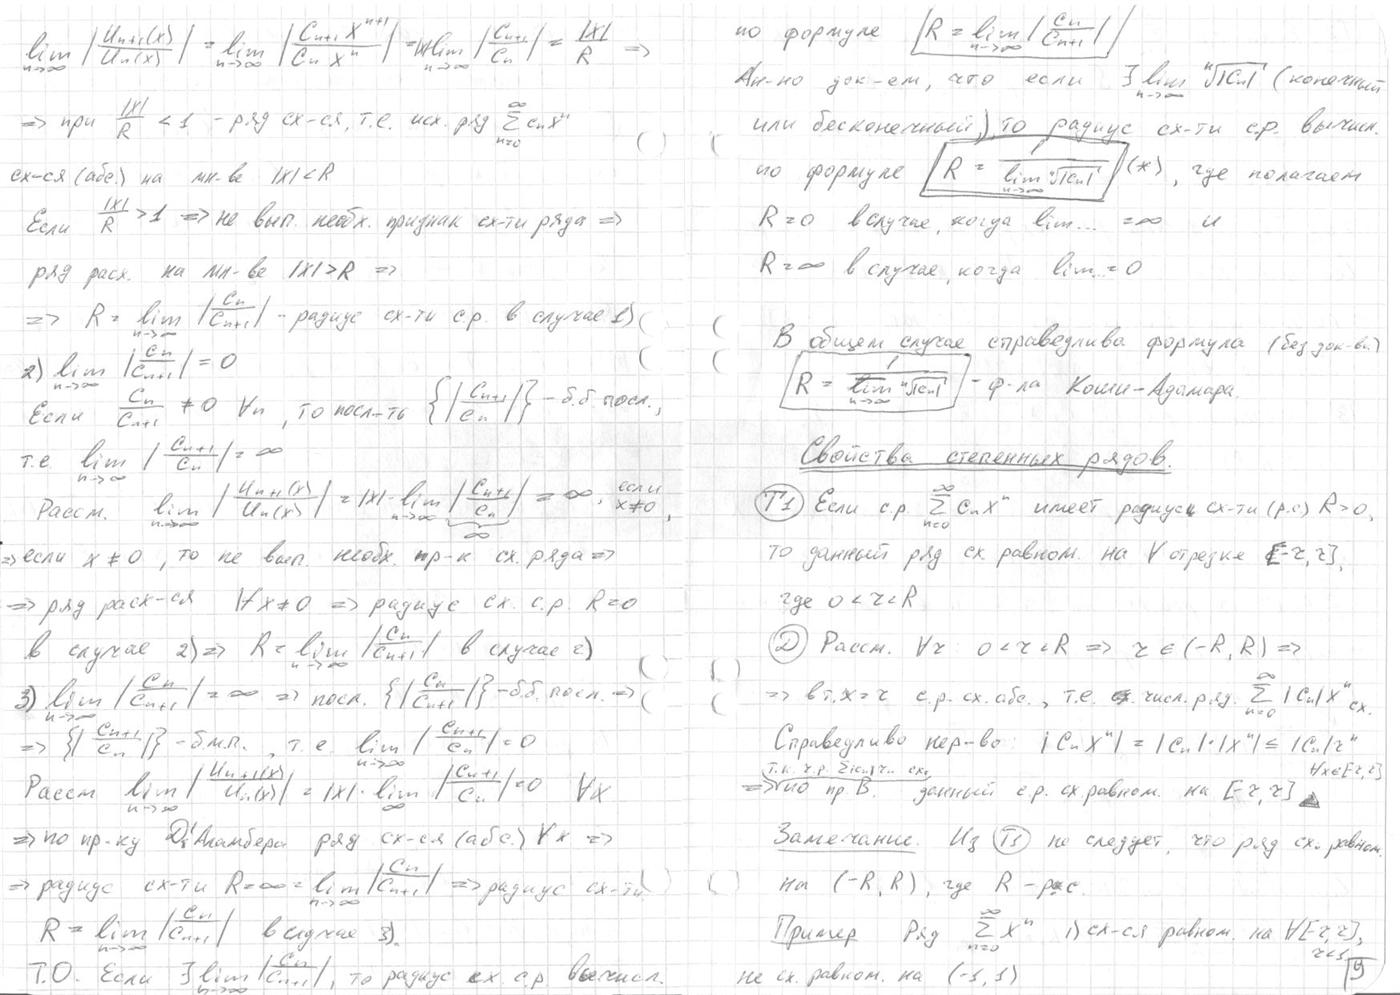 lim_{n→∞} |U_{n+1}(x)/U_n(x)| = lim_{n→∞} |C_{n+1} X^{n+1}/C_n X^n| = |x| lim_{n→∞} |C_{n+1}/C_n| = |x|/R ⇒
⇒ при |x|/R < 1 - ряд сх-ся, т.е. исх. ряд ∑_{n=0}^∞ c_n x^n
сх-ся (абс.) на мн-ве |x| < R
Если |x|/R > 1 ⇒ не вып. необх. признак сх-ти ряда ⇒
ряд расх. на мн-ве |x| > R ⇒
⇒ R = lim_{n→∞} |C_n/C_{n+1}| - радиус сх-ти с.р. в случае 1)
2) lim_{n→∞} |C_n/C_{n+1}| = 0
Если C_n/C_{n+1} ≠ 0 ∀n, то посл-ть {|C_{n+1}/C_n|} - б.б. посл.,
т.е. lim_{n→∞} |C_{n+1}/C_n| = ∞
Рассм. lim_{n→∞} |U_{n+1}(x)/U_n(x)| = |x|·lim_{n→∞} |C_{n+1}/C_n| = ∞, если x≠0,
∞
⇒ если x ≠ 0, то не вып. необх. пр-к сх. ряда ⇒
⇒ ряд расх-ся ∀x≠0 ⇒ радиус сх. с.р. R=0
в случае 2) ⇒ R = lim_{n→∞} |C_n/C_{n+1}| в случае 2)
3) lim_{n→∞} |C_n/C_{n+1}| = ∞ ⇒ посл. {|C_n/C_{n+1}|} - б.б. посл. ⇒
⇒ {|C_{n+1}/C_n|} - б.м.п., т.е. lim_{n→∞} |C_{n+1}/C_n| = 0
Рассм lim_{n→∞} |U_{n+1}(x)/U_n(x)| = |x|·lim_∞ |C_{n+1}/C_n| = 0 ∀x
⇒ по пр-ку Д'Аламбера ряд сх-ся (абс.) ∀x ⇒
⇒ радиус сх-ти R = ∞ = lim_{n→∞} |C_n/C_{n+1}| ⇒ радиус сх-ти
R = lim_{n→∞} |C_n/C_{n+1}| в случае 3).
Т.О. Если ∃ lim_{n→∞} |C_n/C_{n+1}|, то радиус сх. с.р. вычисл.
по формуле R = lim_{n→∞} |C_n/C_{n+1}|
Ан-но док-ем, что если ∃ lim_{n→∞} ⁿ√|C_n| (конечный
или бесконечный), то радиус сх-ти с.р. вычисл.
по формуле R = 1/lim_{n→∞} ⁿ√|C_n| (*), где полагаем
R = 0 в случае, когда lim... = ∞ и
R = ∞ в случае, когда lim... = 0
В общем случае справедлива формула (без док-ва)
R = 1/\overline{lim}_{n→∞} ⁿ√|C_n| - ф-ла Коши-Адамара.
Свойства степенных рядов.
(Т1) Если с.р. ∑_{n=0}^∞ C_n x^n имеет радиус сх-ти (р.с) R>0,
то данный ряд сх. равном. на ∀ отрезке [-r, r],
где 0 < r < R
(Д) Рассм. ∀r: 0 < r < R ⇒ r ∈ (-R, R) ⇒
⇒ в т. x = r с.р. сх. абс., т.е. числ. ряд ∑_{n=0}^∞ |C_n| X^n сх.
Справедливо нер-во: |C_n X^n| = |C_n|·|X^n| ≤ |C_n| r^n
∀x∈[-r, r]
т.к. ч.р. ∑|C_n| r^n сх.
⇒ по пр. В. данный с.р. сх. равном. на [-r, r] ▲
Замечание. Из (Т1) не следует, что ряд сх. равном.
на (-R, R), где R - р.с.
Пример Ряд ∑_{n=0}^∞ x^n 1) сх-ся равном. на ∀[-r, r],
r<1
не сх. равном. на (-1, 1)
9